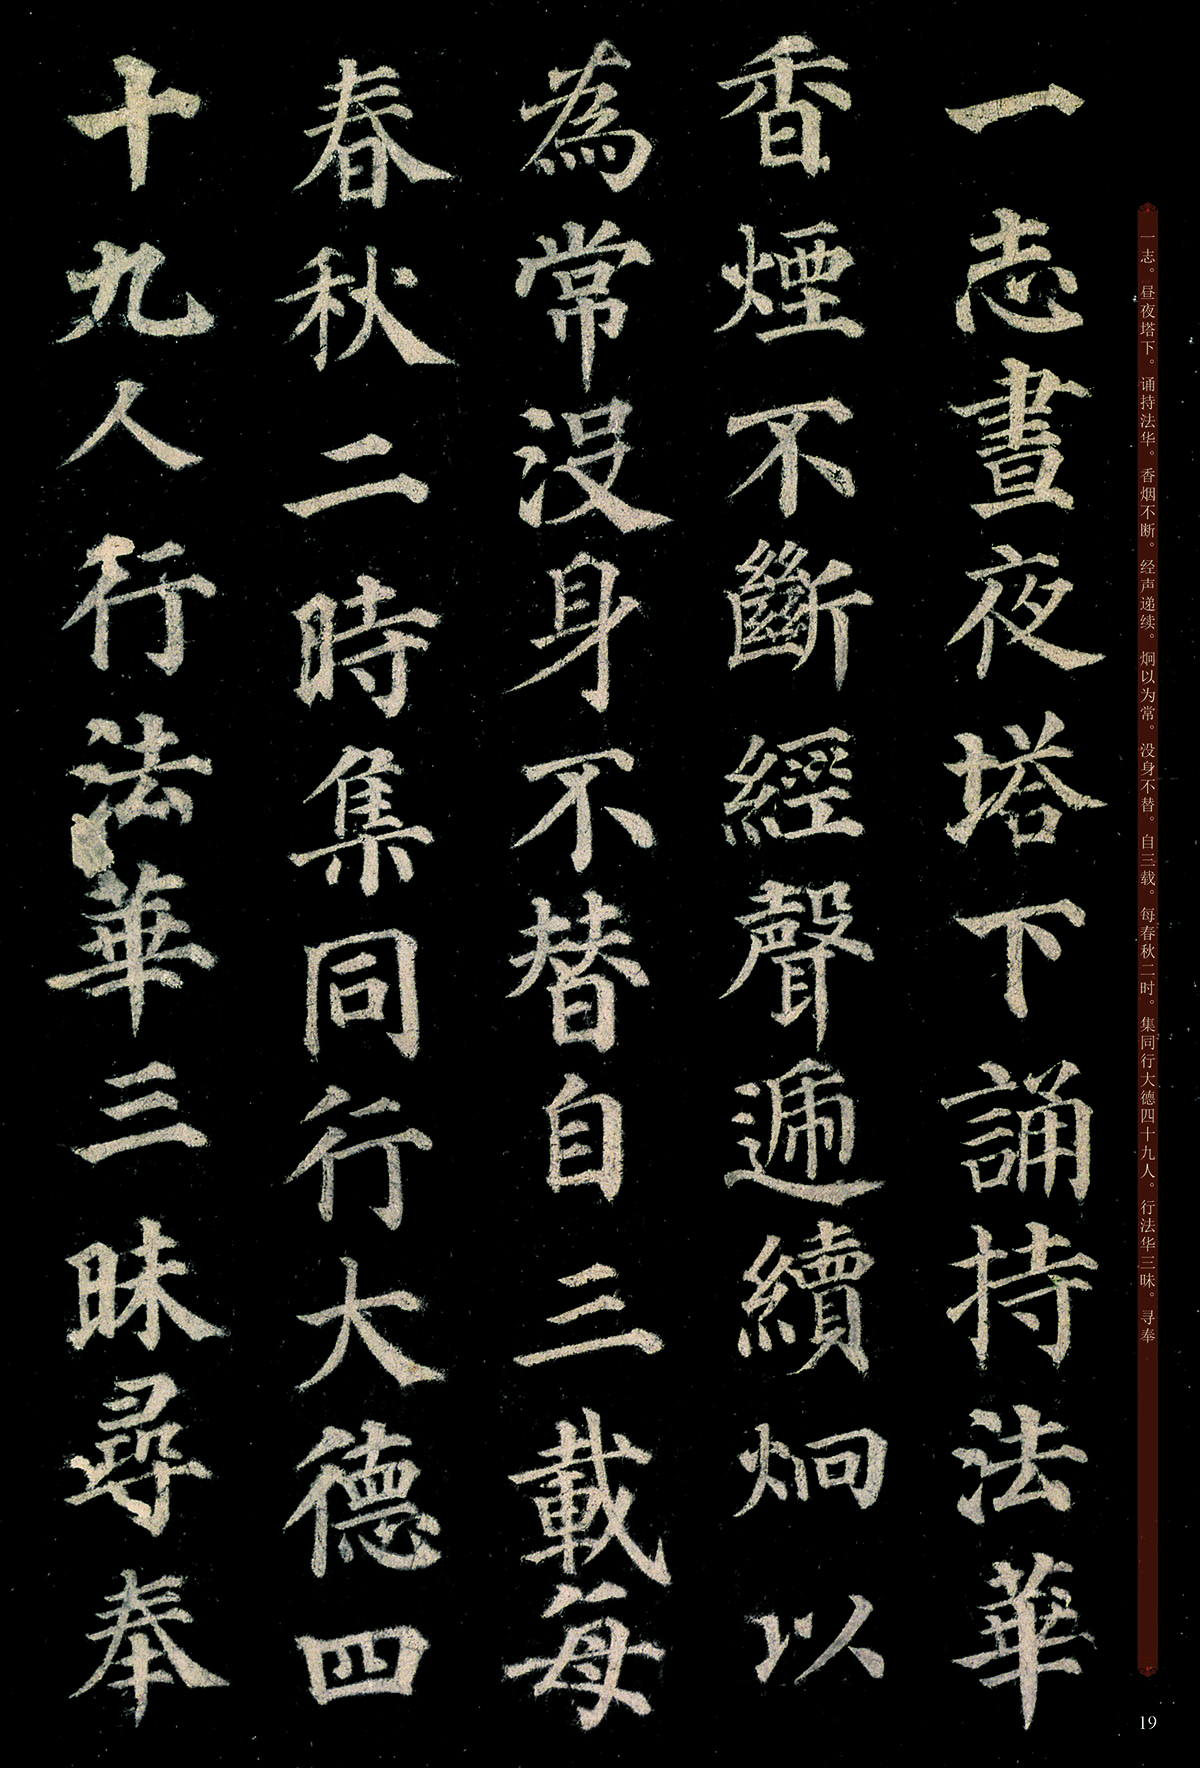 一志晝夜塔下誦持法華
香煙不斷經聲遞續炯以
為常没身不替自三載每
春秋二時集同行大德四
十九人行法華三昧尋奉
一志。昼夜塔下。诵持法华。香烟不断。经声递续。炯以为常。没身不替。自三载。每春秋二时。集同行大德四十九人。行法华三昧。寻奉
19